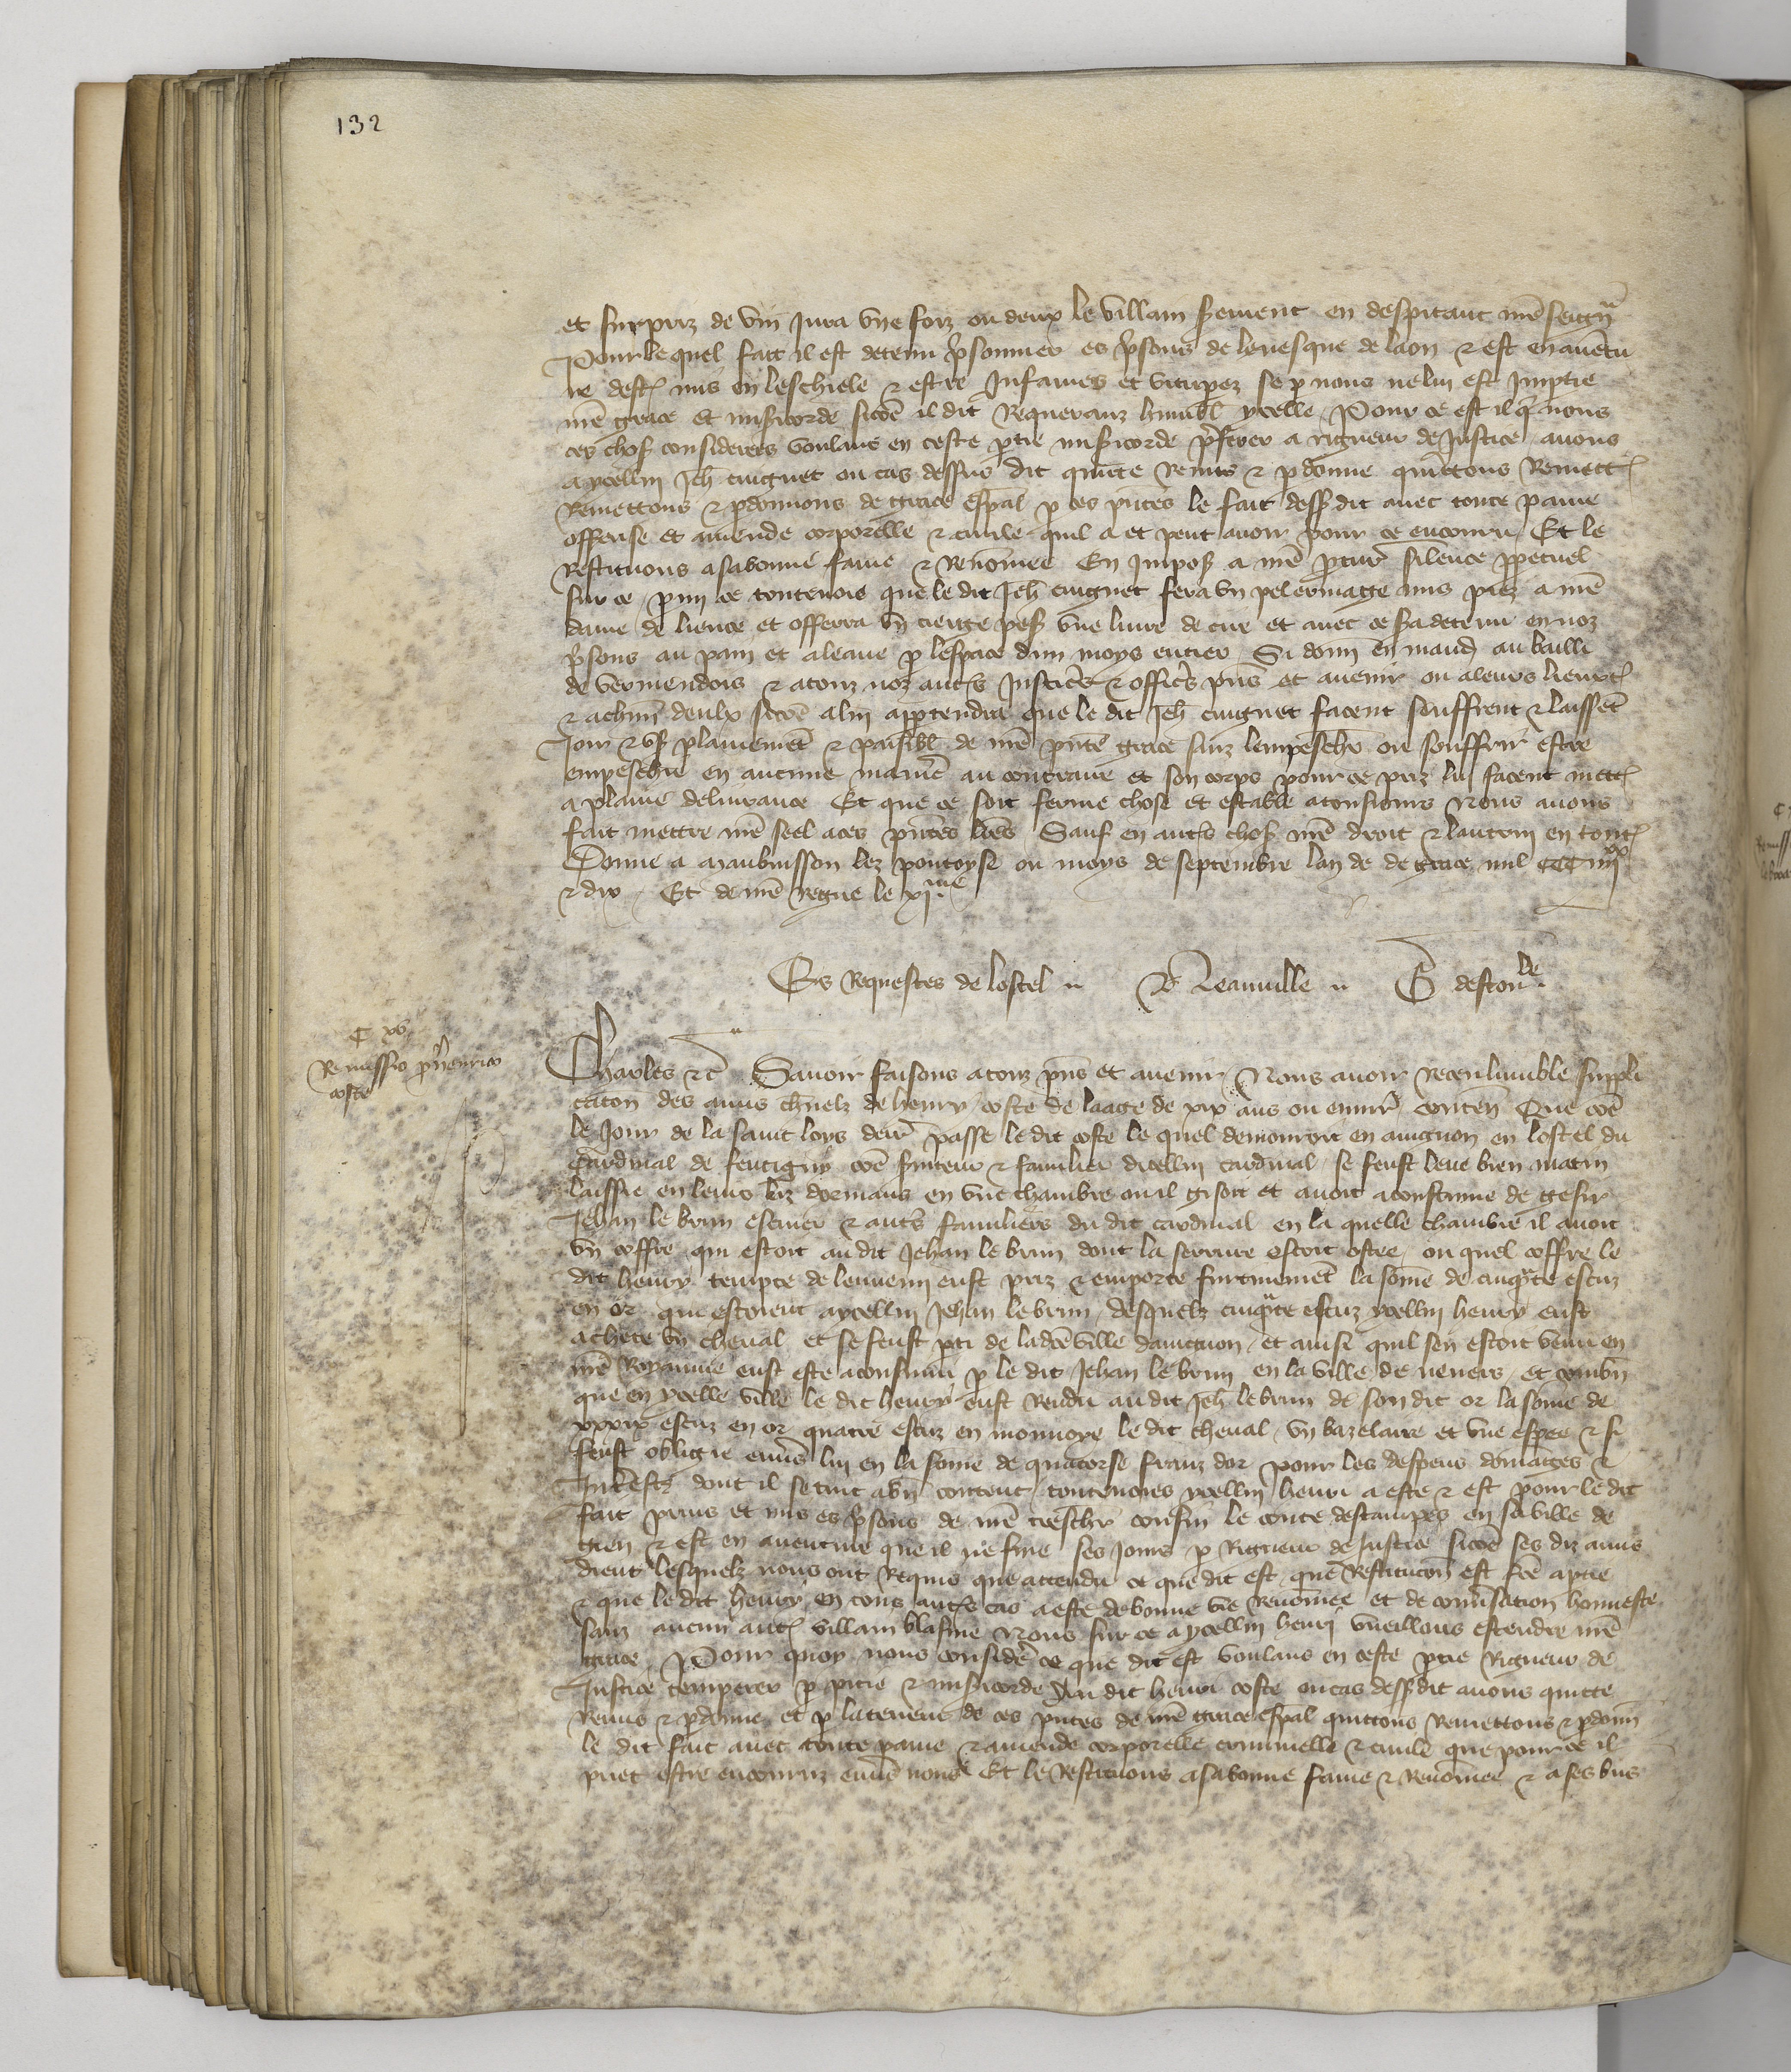 132
et surpriz de vin jura une foiz ou deux le villain serement en despitant nre seigñ
Pour le quel fait il est detenu prisonnier es prisons de levesque de laon & est en aventu
re destre mis en leschiele & estre Infames et vituperez se p nous ne lui est Imptie
nre grace et misicorde sicõe il dit Requeranz humbl ycelle Pour ce est il q̃ nous
ces chos considerees voulans en ceste ptie misicorde pferer a rigueur de Justice avons
a ycellui Jeh cuignet ou cas dessus dit quitte Remis & pdonne quittons Remett
Remettons & pdonnons de grace espal p ces pntes le fait dessdit avec toute paine
offense et amende corporelle & civile quil a et peut avoir pour ce encouru Et le
Restituons a sa bonne fame & Renõmee En Impos a nre pcur silence ppetuel
sur ce pmi ce toutevois que le dit Jeh cuignet fera un pelerinage nus piez a nre
dame de lience et offerra un cierge pes une livre de cire et avec ce sra detenu en noz
prisons au pain et a leaue p lespace dun moys entier Si donn en mand au bailli
de vermendois & a touz noz autres Justiciers & officers pns et avenir ou a leurs lieuxt
& a chun deulx sicõe a lui appartendra que le dit Jeh cuignet facent seuffrent & laissẽt
Joir & us plainemẽt & paisibl de nre pnte grace sanz lempeschr ou souffrir estre
empeschie en aucune manire au contraire et son corps pour ce priz lui facent mett
a plaine delivrance Et que ce soit ferme chose et estable a tousiours Nous avons
fait mettre nre seel a ces pntes lres Sauf en autres chos nre droit & lautrui en tout
Donne a Maubuisson lez pontoyse ou moys de septembre lan de de grace mil CCC iiij xx
& dix Et de nre regne le xj.me
Es Requestes de lostel .. P Neauville .. G destou.le
C xv
Remissio p henrico
coste
Charles &c Savoir faisons a touz pns et avenir Nous avoir receu lumble suppli
cacon des amis chnelz de henry coste de laage de xix ans ou envir conten Que cõe
le Jour de la saint loys derr passe le dit coste le quel demouroit en avignon en lostel du
cardinal de sentigny cõe sviteur & familier dicellui cardinal se feust leve bien matin
laissie en leurs liz dormans en une chambre ou il gisoit et avoit acoustume de gesir
Jehan le brun escuier & autrs familiers du dit cardinal en la quelle chambre il avoit
un coffre qui estoit au dit Jehan le brun dont la serrure estoit ostee ou quel coffre le
dit henry tempte de lennemi eust priz & emporte furtivemẽt la sõme de cinqte escuz
en or qui estoient a ycellui Jehan le brun desquelz cinqte escuz ycellui henry eust
achete un cheval et se feust pti de ladcẽ ville davignon et ainsi quil sen estoit venu en
nre Royaume eust este aconsuivi p le dit Jehan le brun en la ville de nevers et combn
que en ycelle ville le dit henry eust Rendu au dit Jeh le brun de son dit or la sõme de
xxxix escuz en or quatre escuz en monnoye le dit cheval un bazelaire et une espee & se
feust obligie envrs lui en la sõme de quatorse franz dor pour les despens dõmages &
Interestz dont il se tint a bn content toutevoies ycellui henri a este & est pour ledit
fait prins et mis es prisons de nre treschr cousin le conte destampes en sa ville de
gien & est en aventure que il ne fine ses Jours p Rigueur de Justice sicõe ses diz amis
dient lesquelz nous ont Requis que attendu ce que dit est que Restitucon est fcẽ a ptie
& que le dit henry en tous autres cas a este de bonne vie Renõmee et de convrsation honneste
sanz aucun autr villain blasme Nous sur ce a ycellui henri vueillons estendre nre
grace Pour quoy nous considere ce que dit est voulans en ceste ptie Rigueur de
Justice temperer p pitie & misicorde Au dit henri coste ou cas dessdit avons quitte
Remis & pdonne et p la teneur de ces pntes de nre grace espal quittons Remettons & pdonn
le dit fait avec toute paine & amende corporelle criminelle & civile que pour ce il
puet estre encouruz envrs nous Et le Restituons a sa bonne fame & Renõmee & a ses bns